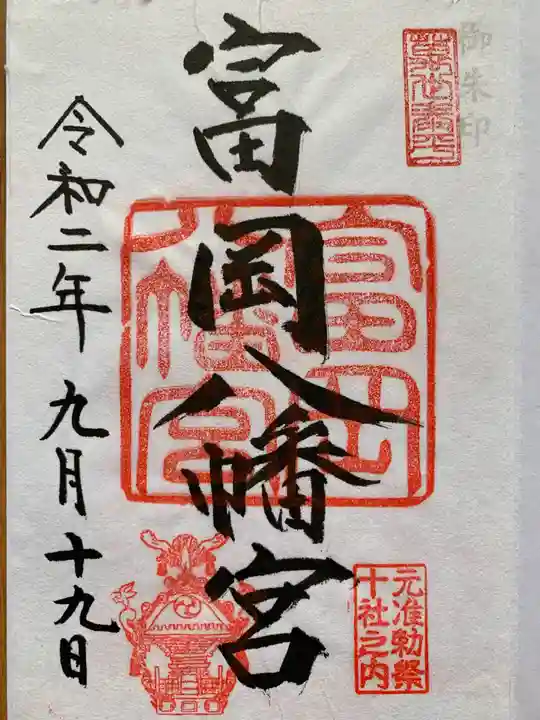 御朱印
富岡八幡宮
元准勅祭
十社之内
令和二年 九月十九日
富岡
八幡宮